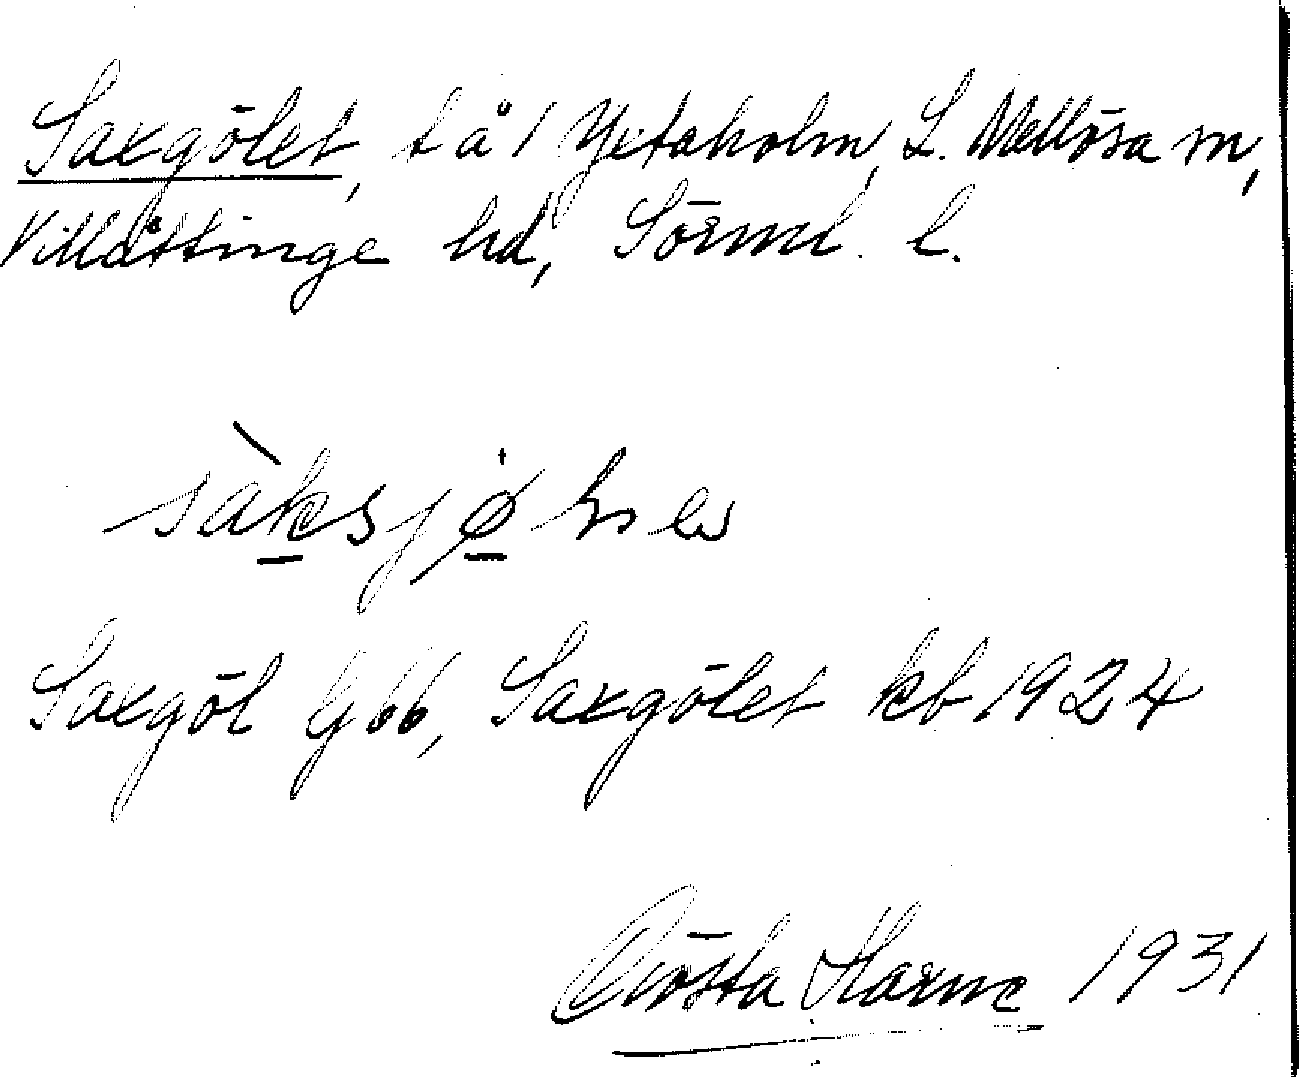 Saxgölet, t å / Yxtaholm, L. Mellösa sn,
Villåttinge hd, Sörml. l.
sàksjø
Saxgöl Gbb, Saxgölet kb 1924
Gösta Harne 1931